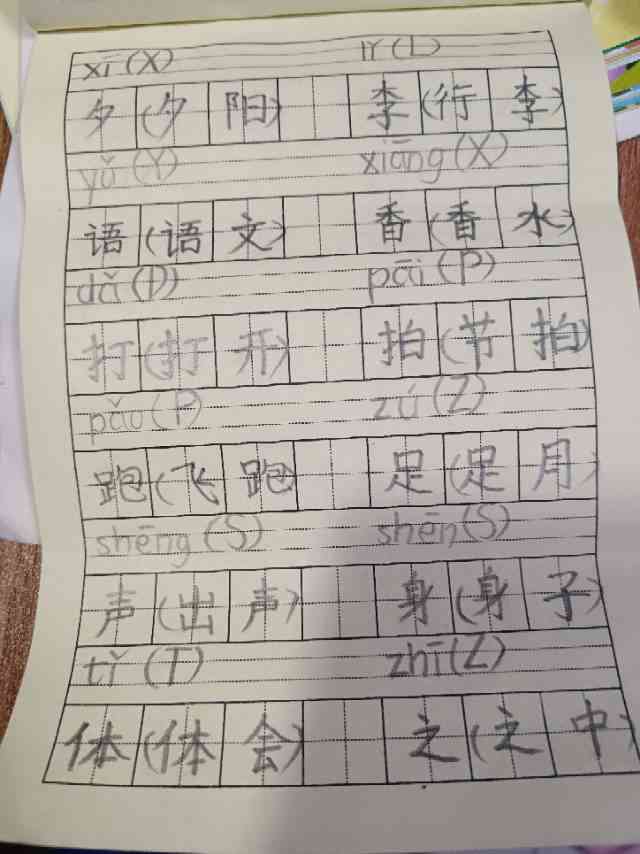 xī (X) lǐ (L)
夕 (夕阳) 李 (行李)
yǔ (Y) xiāng (X)
语 (语文) 香 (香水)
dǎ (D) pāi (P)
打 (打开) 拍 (节拍)
pǎo (P) zú (Z)
跑 (飞跑) 足 (足月)
shēng (S) shēn (S)
声 (出声) 身 (身子)
tǐ (T) zhī (Z)
体 (体会) 之 (之中)